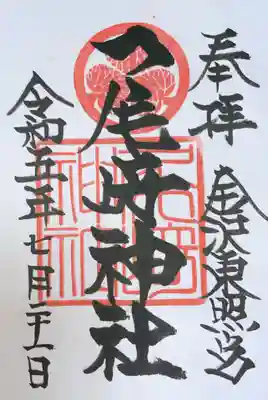 奉拝
金沢東照宮
尾崎神社
令和五年七月二十一日
尾崎
神社